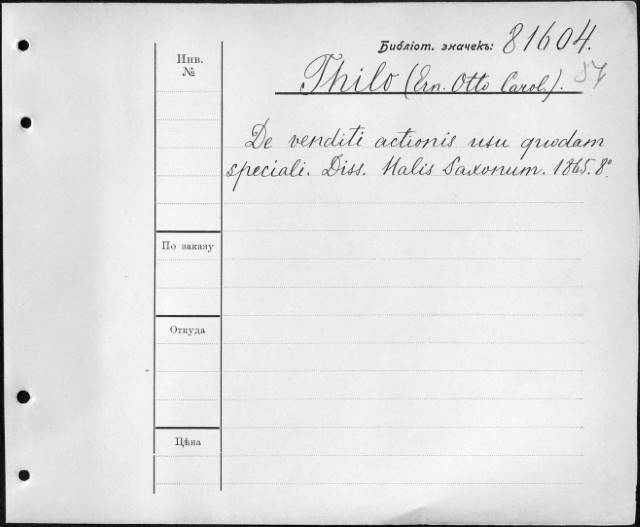 Библіот. значекъ: 81604.
Инв.
№
Thilo (Ern. Otto Carol.).
De venditi actionis usu quodam
speciali. Diss. Halis Saxonum. 1865. 8°
По заказу
Откуда
Цѣна